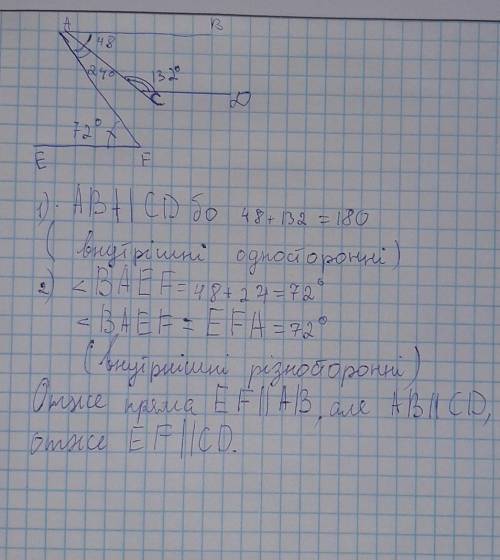 A B
48
24°
132°
C D
72°
E F
1) AB || CD бо 48 + 132 = 180
(внутрішні односторонні)
2) < BAEF = 48 + 24 = 72°
< BAEF = EFA = 72°
(внутрнішні різносторонні)
Отже пряма EF || AB, але AB || CD,
отже EF || CD.